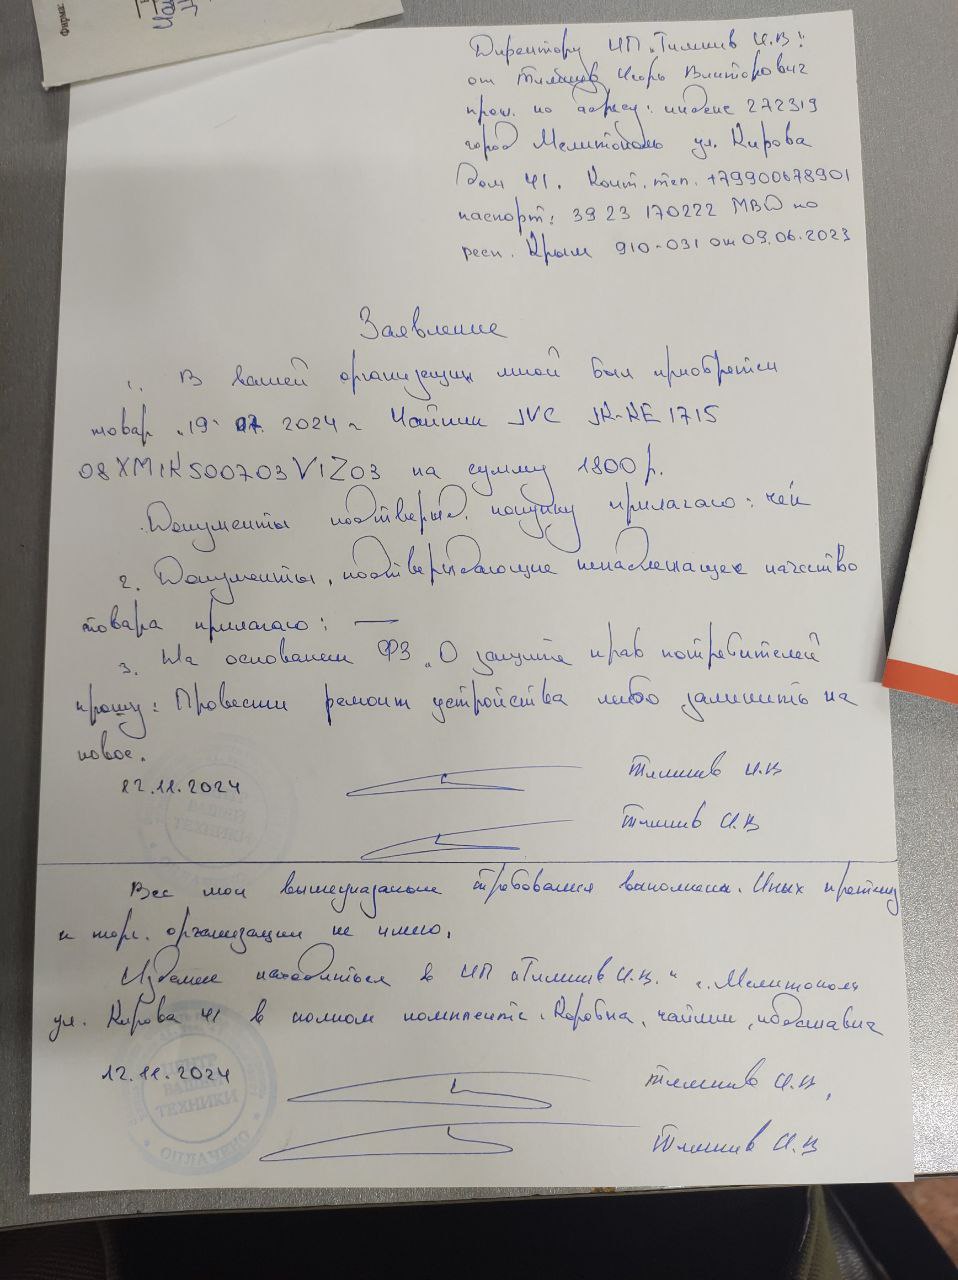 Фирма:
Директору ИП „Тимшив И.В"
от Тимшив Игорь Викторович
прож. по адресу: индекс 272319
город Мелитополь ул. Кирова
Дом 41. Конт. тел. +79900678901
паспорт: 39 23 170222 МВД по
респ. Крым 910-031 от 09.06.2023
Заявление
1. В вашей организации мной был приобретен
товар „19" 07. 2024 г Чайник JVC JK-KE 1715
08XM1K500703V1Z03 на сумму 1800 р.
Документы подтвержд. покупку прилагаю: чек
2. Документы, подтверждающие ненадлежащее качество
товара прилагаю: —
3. На основании ФЗ „О защите прав потребителей
прошу: Провести ремонт устройства либо заменить на
новое.
12.11.2024 Тимшив И.В
Тимшив И.В
Все мои вышеуказаные требования выполнены. Иных претенз
к торг. организации не имею.
Изделие находиться в ИП „Тимшив И.В." г. Мелитополь
ул. Кирова 41 в полном комплекте. Коробка, чайник, подставка
12.11.2024 Тимшив И.В,
Тимшив И.В
ЦЕНТР
ВАШЕЙ
ТЕХНИКИ
ОПЛАЧЕНО